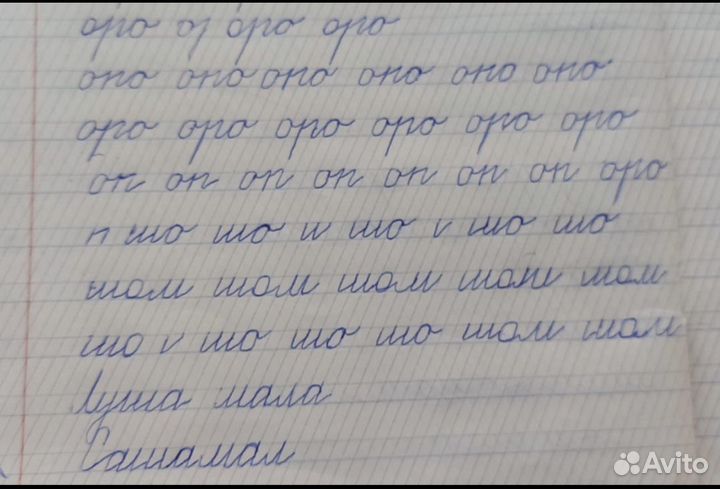 оро ор оро оро
оно оно оно оно оно оно
оро оро оро оро оро оро
оп оп оп оп оп оп оп оро
п шо шо и шо и шо шо
шом шом шом шом шом
шо и шо шо шо шом шом
Луша мала
Сашамал
Avito